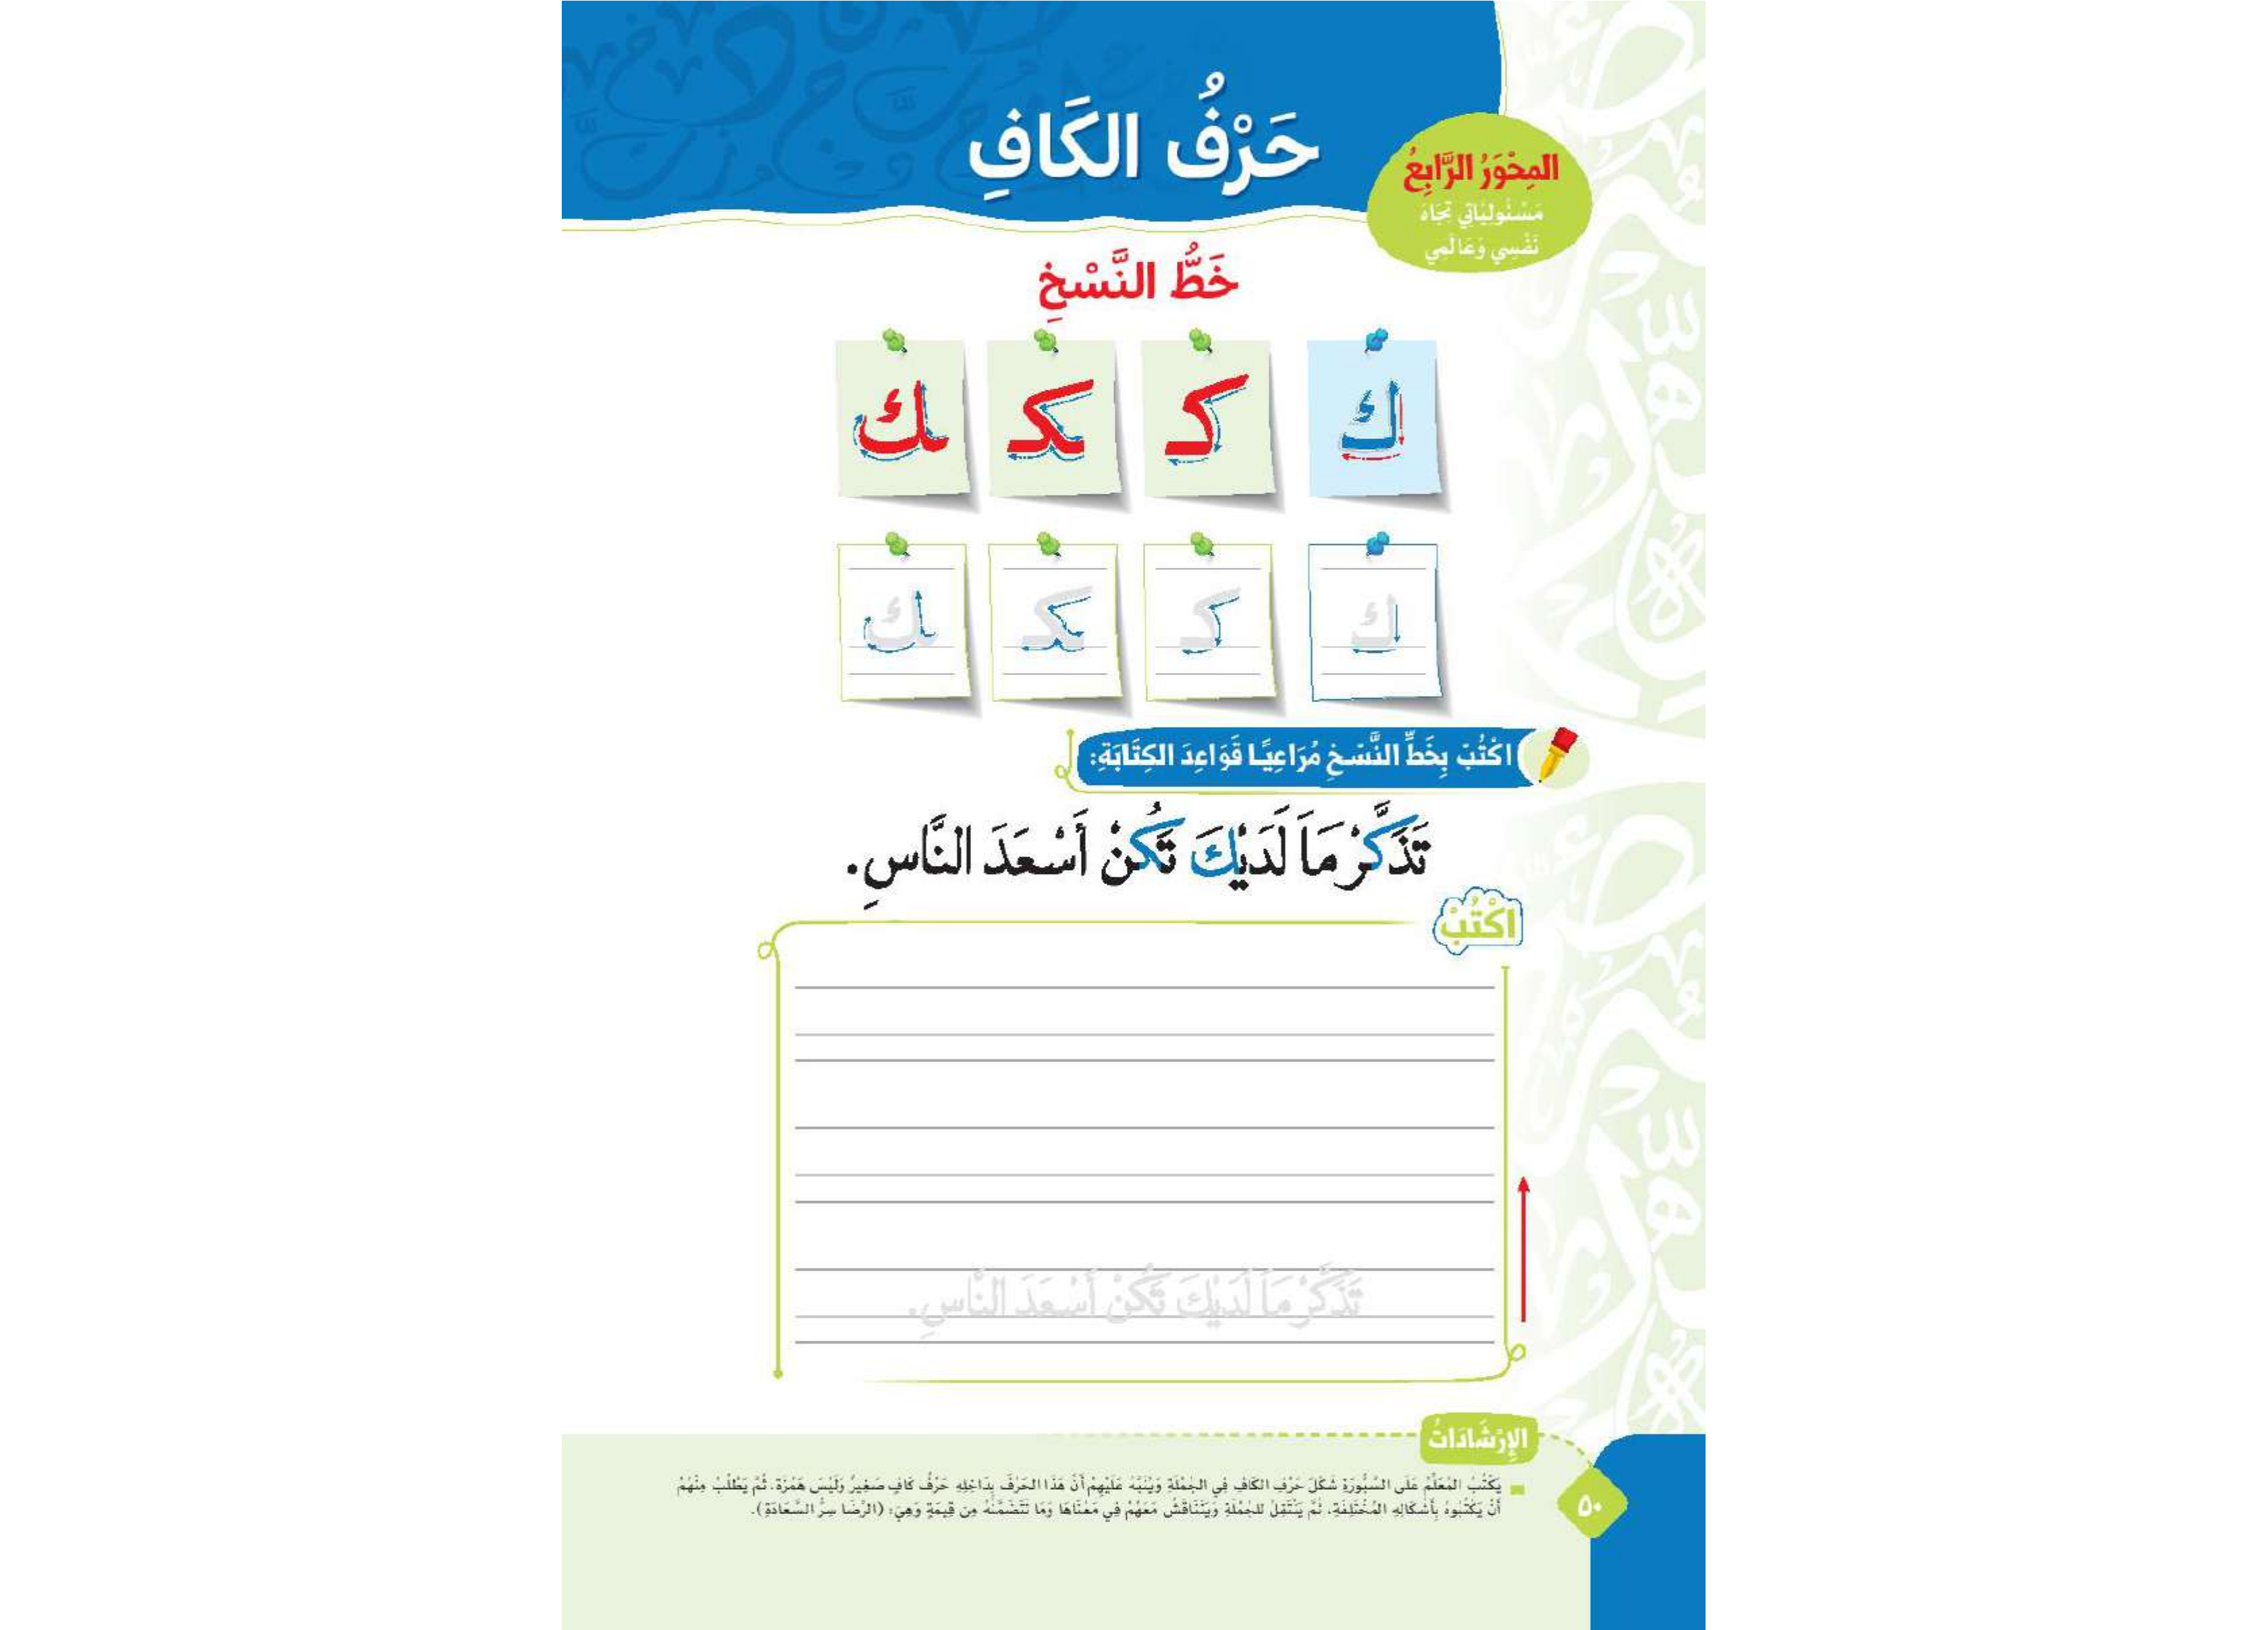 حَرْفُ الكَافِ
المِحْوَرُ الرَّابِعُ
مَسْئُولِيَّاتِي تِجَاهَ
نَفْسِي وَعَالَمِي
خَطُّ النَّسْخِ
ك كـ ـكـ ـك
ك كـ ـكـ ـك
اكْتُبْ بِخَطِّ النَّسْخِ مُرَاعِيًا قَوَاعِدَ الكِتَابَةِ:
تَذَكَّرْ مَا لَدَيْكَ تَكُنْ أَسْعَدَ النَّاسِ.
اكْتُبْ
تَذَكَّرْ مَا لَدَيْكَ تَكُنْ أَسْعَدَ النَّاسِ.
الإِرْشَادَاتُ
يَكْتُبُ المُعَلِّمُ عَلَى السَّبُّورَةِ شَكْلَ حَرْفِ الكَافِ فِي الجُمْلَةِ وَيُنَبِّهُ عَلَيْهِمْ أَنَّ هَذَا الحَرْفَ بِدَاخِلِهِ حَرْفُ كَافٍ صَغِيرٌ وَلَيْسَ هَمْزَة، ثُمَّ يَطْلُبُ مِنْهُمْ
أَنْ يَكْتُبُوهُ بِأَشْكَالِهِ المُخْتَلِفَةِ، ثُمَّ يَنْتَقِلُ لِلجُمْلَةِ وَيَتَنَاقَشُ مَعَهُمْ فِي مَعْنَاهَا وَمَا تَتَضَمَّنُهُ مِن قِيمَةٍ وَهِيَ: (الرِّضَا سِرُّ السَّعَادَةِ).
٥٠